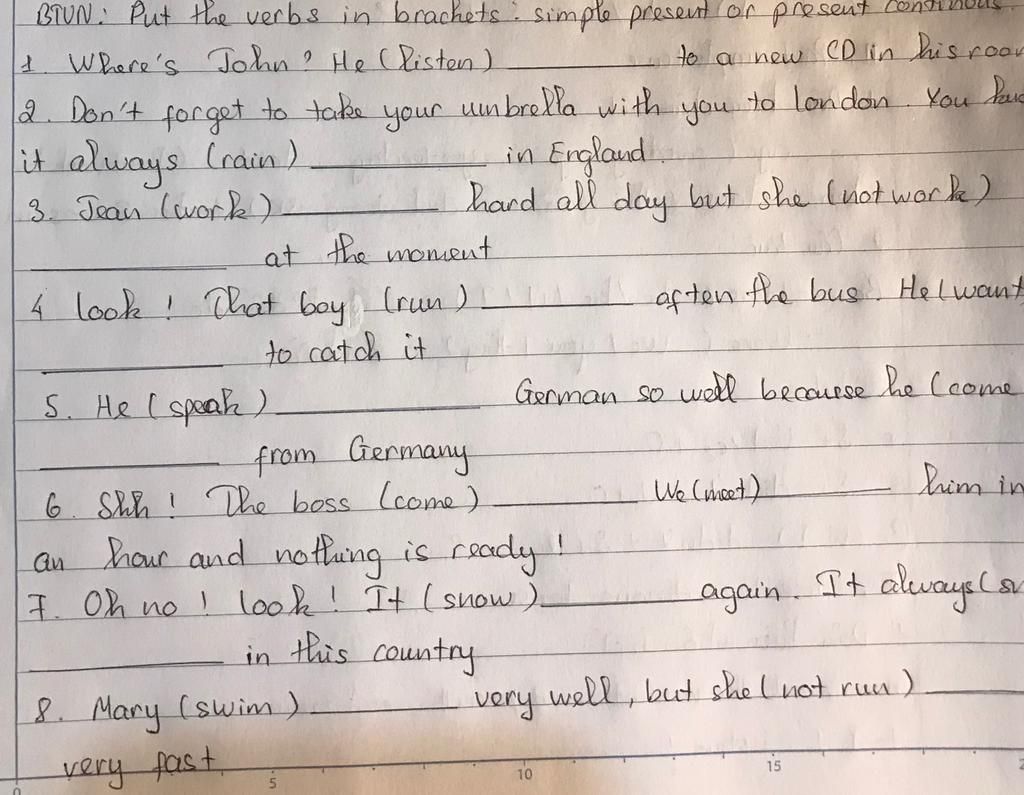 BTVN: Put the verbs in brackets: simple present or present continuous
1. Where's John? He (listen) ________ to a new CD in his room
2. Don't forget to take your umbrella with you to london. You
it always (rain) ________ in England.
3. Jean (work) ________ hard all day but she (not work)
________ at the moment
4 look! That boy (run) ________ after the bus. He (want
________ to catch it
5. He (speak) ________ German so well because he (come
________ from Germany
6. Shh! The boss (come) ________ We (meet) ________ him in
an hour and nothing is ready!
7. Oh no! look! It (snow) ________ again. It always (sn
________ in this country
8. Mary (swim) ________ very well, but she (not run) ________
very fast
0 5 10 15 2